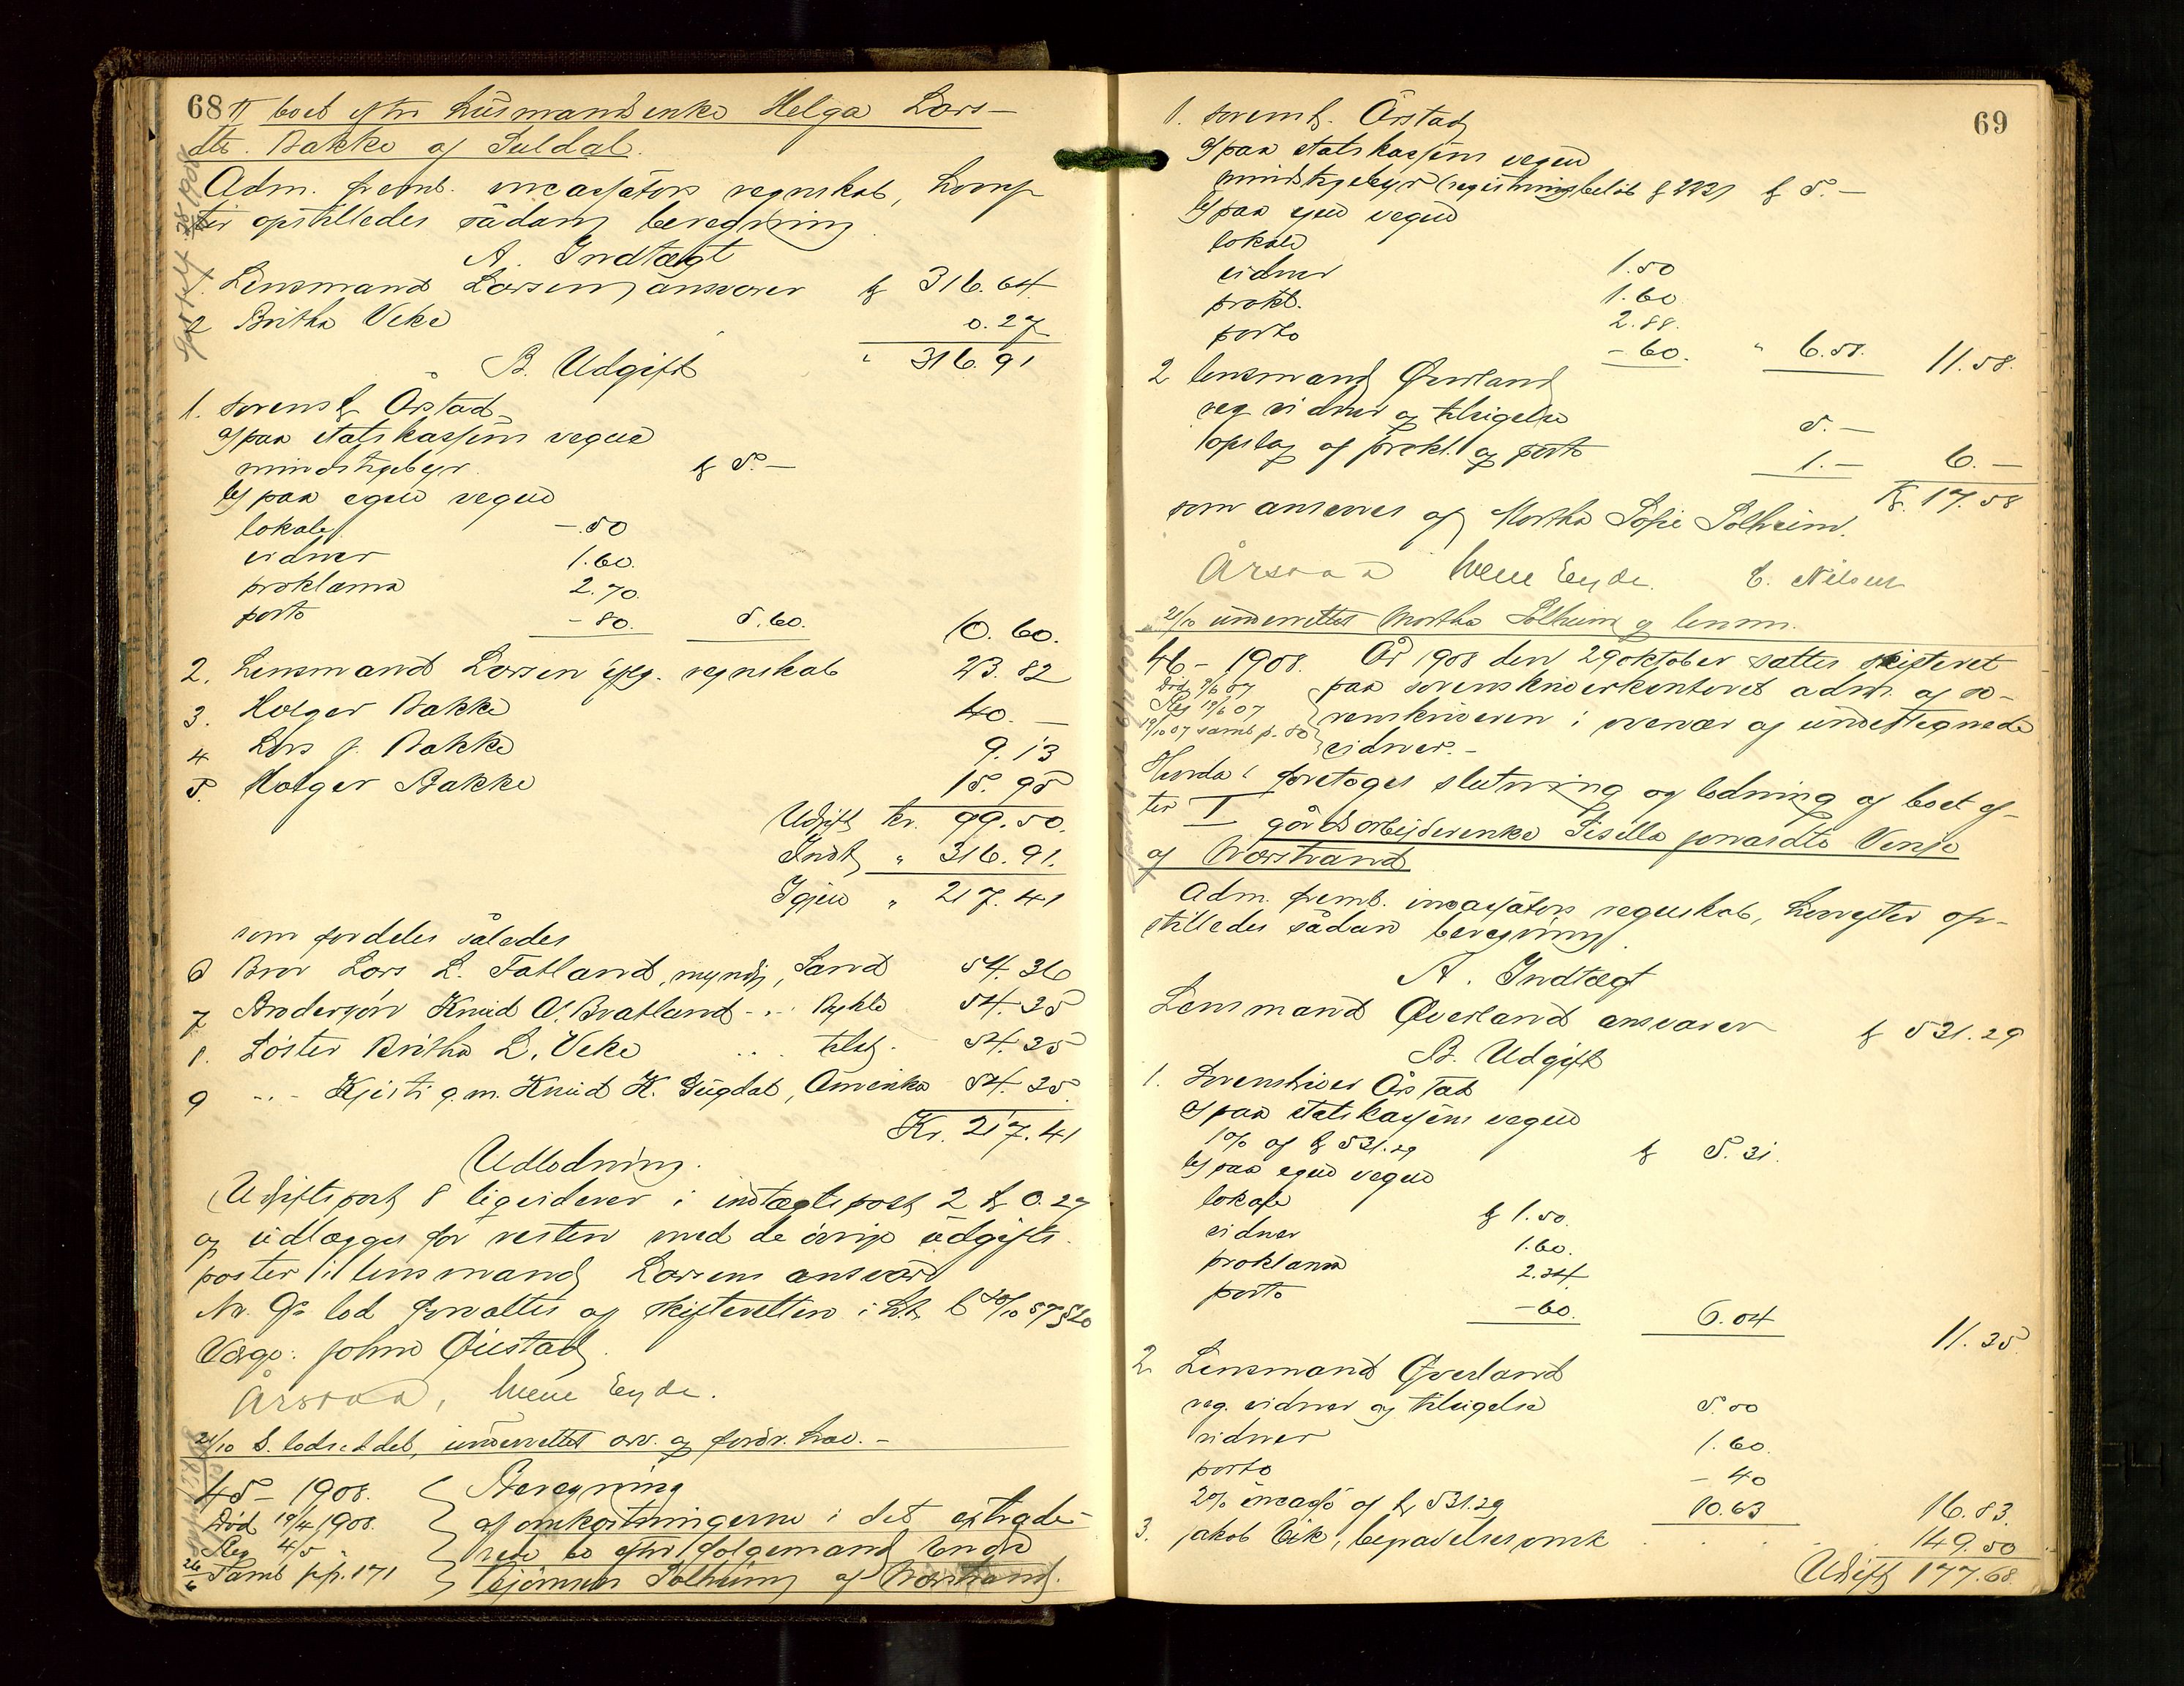 68 II boet efter husmandsenke Helga Lars-
dtr. Bakke af Suldal.
Adm. fremb. incassators regnskab, hvoref
ter opstilledes sådan beregning
A. Indtægt
1. Lensmand Larsen ansvarer kr 316.64
2 Britha Veke 0.27
" 316.91
B. Udgift
1. sorenskr Årstad
a) paa statskassens vegne
mindstegebyr. kr 5.–
b) paa egne vegne
lokale –.50
vidner 1.60.
proklama 2.70.
porto –80. 5.60. 10.60.
2. Lensmand Larsen iflg. regnskab 23.82
3. Holger Bakke 40.–
4 Lars J. Bakke 9.13
5. Holger Bakke 15.95
Udgift kr. 99.50.
Indt " 316.91.
Igjen " 217.41
som fordeles således
6 Bror Lars L. Fatland, myndig, Sand 54.36
7 Brodersøn Knud O. Bratland -"- Bykle 54.35
8. Søster Britha L. Veke " " tilst. 54.35
9 -"- Kjersti g.m. Knud K. Gugdal, Amerika 54.35
Kr. 217.41
Udlodning.
Udgiftspost 8 ligviderer i indtægtspost 2 kr 0.27
og udlægges for resten med de øvrige udgifts-
poster i lensmand Larsens ansvar
Nr. 9s lod forvaltes af skifteretten i
Værge: John Øiestad.
Årstad, Wene Eyde.
21/10 S. lodseddel, underrettet arv. og fordr. hav. –
45 – 1908.
Død 19/4 1908.
Reg 4/5 "
26/6 Samb pp. 171
Beregning
af omkostningerne i det extrade-
rede bo efter folgemand Endre
Bjørnsen Solheim af Nærstrand.
69
1. sorenskr. Årstad
a) paa statskassens vegne
mindstegebyr (registreringsbeløb kr 222) kr 5.–
b) paa egne vegne
lokale 1.50
vidner 1.60
prokl. 2.88.
porto –60. " 6.58. 11.58.
2 lensmand Øverland
reg vidner og tilsigelse 5.–
opslag af prokl. og porto 1.– 6.–
Kr. 17.58
som ansvares af Martha Sofie Solheim.
Årstad Wene Eyde. E. Nilsen
21/10 underrettet Martha Solheim og lensm.
46 – 1908. År 1908 den 29 oktober sattes skifteret
paa sorenskriverkontoret adm. af so-
renskriveren i overvær af undertegnede
vidner. –
Død 9/6 07
Reg 19/6 07
19/10 07 samb p. 80
Hvorda foretoges slutning og lodning af boet ef-
ter I gårdsarbeiderenke Gisella Jonasdtr Venje
af Nærstrand
Adm. fremb. incassators regnskab, hvorefter op-
stilledes sådan beregning
A. Indtægt
Lensmand Øverland ansvarer kr 531.29
B. Udgift
1. Sorenskriver Årstad
a) paa statskassens vegne
1% af kr 531.29 kr 5.31.
b) paa egne vegne
lokale kr 1.50.
vidner 1.60.
proklama 2.34
porto –60. 6.04 11.35.
2 Lensmand Øverland
reg. vidner og tilsigelse 5.00
vidner 1.60.
porto –40
2% incasso af kr 531.29 10.63 16.83.
3. Jakob Eik, begravelsesomk . . . 149.50
Udgift 177.68.